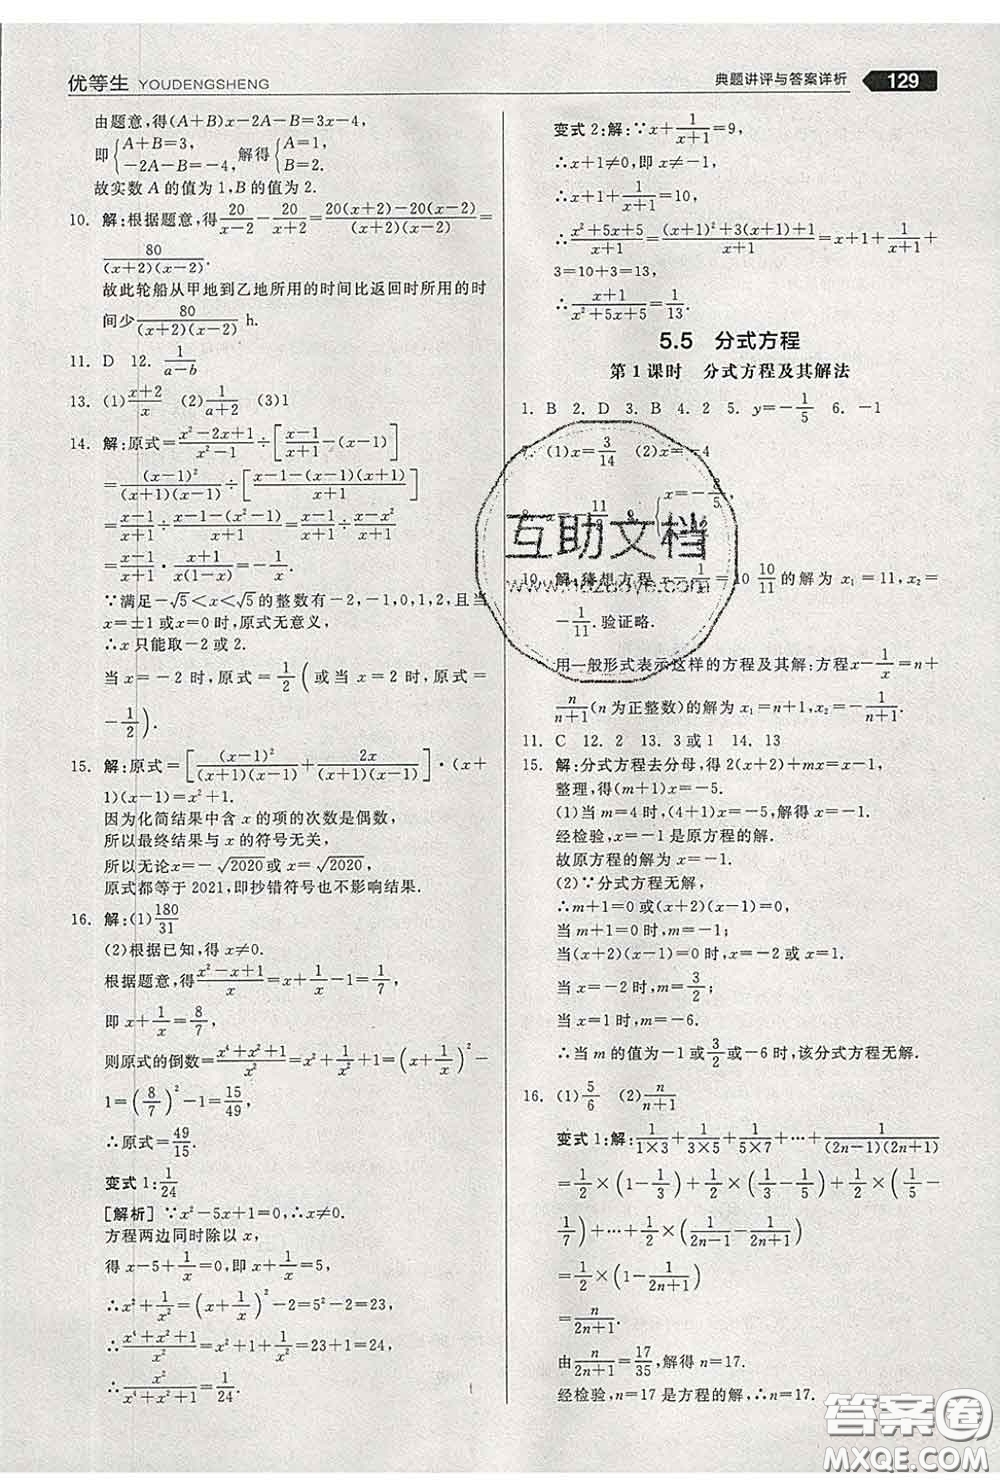 优等生 YOUDENGSHENG
典题讲评与答案详析 129
由题意，得(A+B)x-2A-B=3x-4，
即{A+B=3, -2A-B=-4, 解得{A=1, B=2.
故实数 A 的值为 1，B 的值为 2.
10. 解：根据题意，得20/(x-2)-20/(x+2)=[20(x+2)-20(x-2)]/[(x+2)(x-2)]=
80/[(x+2)(x-2)].
故此轮船从甲地到乙地所用的时间比返回时所用的时
间少80/[(x+2)(x-2)] h.
11. D 12. 1/(a-b)
13. (1)(x+2)/x (2)1/(a+2) (3)1
14. 解：原式=(x²-2x+1)/(x²-1)÷[(x-1)/(x+1)-(x-1)]
=(x-1)²/[(x+1)(x-1)]÷[(x-1-(x-1)(x+1))/(x+1)]
=(x-1)/(x+1)÷(x-1-(x²-1))/(x+1)=(x-1)/(x+1)÷(x-x²)/(x+1)
=(x-1)/(x+1)·(x+1)/(x(1-x))=-1/x.
∵满足-√5<x<√5的整数有-2，-1,0,1,2，且当
x=±1 或 0 时，原式无意义，
∴x 只能取-2 或 2.
当 x=-2 时，原式=1/2(或当 x=2 时，原式=
-1/2).
15. 解：原式=[(x-1)²/((x+1)(x-1))+2x/((x+1)(x-1))]·(x+
1)(x-1)=x²+1.
因为化简结果中含 x 的项的次数是偶数，
所以最终结果与 x 的符号无关.
所以无论x=-√2020或x=√2020，
原式都等于 2021，即抄错符号也不影响结果.
16. 解：(1)180/31
(2)根据已知，得 x≠0.
根据题意，得(x²-x+1)/x=x+1/x-1=1/7，
即 x+1/x=8/7，
则原式的倒数=(x⁴+x²+1)/x²=x²+1/x²+1=(x+1/x)²-
1=(8/7)²-1=15/49，
∴原式=49/15.
变式 1：1/24
[解析] ∵x²-5x+1=0，∴x≠0.
方程两边同时除以 x，
得 x-5+1/x=0，即 x+1/x=5，
∴x²+1/x²=(x+1/x)²-2=5²-2=23，
∴(x⁴+x²+1)/x²=x²+1/x²+1=23+1=24，
∴x²/(x⁴+x²+1)=1/24.
变式 2：解：∵x+1/(x+1)=9，
∴x+1≠0，即 x≠-1，
∴x+1+1/(x+1)=10，
∴(x²+5x+5)/(x+1)=[(x+1)²+3(x+1)+1]/(x+1)=x+1+1/(x+1)+
3=10+3=13，
∴(x+1)/(x²+5x+5)=1/13.
5.5 分式方程
第 1 课时 分式方程及其解法
1. B 2. D 3. B 4. 2 5. y=-1/5 6. -1
7. (1)x=3/14 (2)x=-4
互助文档
10. 解：猜想方程 x-1/x=10 10/11的解为 x₁=11，x₂=
-1/11.验证略.
用一般形式表示这样的方程及其解：方程x-1/x=n+
n/(n+1)(n 为正整数)的解为 x₁=n+1，x₂=-1/(n+1).
11. C 12. 2 13. 3 或 1 14. 13
15. 解：分式方程去分母，得 2(x+2)+mx=x-1，
整理，得(m+1)x=-5.
(1)当 m=4 时，(4+1)x=-5，解得 x=-1.
经检验，x=-1 是原方程的解.
故原方程的解为 x=-1.
(2)∵分式方程无解，
∴m+1=0 或(x+2)(x-1)=0，
当 m+1=0 时，m=-1；
当(x+2)(x-1)=0 时，x=-2 或 x=1.
当 x=-2 时，m=3/2；
当 x=1 时，m=-6.
∴当 m 的值为-1 或3/2或-6 时，该分式方程无解.
16. (1)5/6 (2)n/(n+1)
变式 1：解：1/(1×3)+1/(3×5)+1/(5×7)+⋯+1/((2n-1)(2n+1))
=1/2×(1-1/3)+1/2×(1/3-1/5)+1/2×(1/5-
1/7)+⋯+1/2×(1/(2n-1)-1/(2n+1))
=1/2×(1-1/(2n+1))
=n/(2n+1).
由n/(2n+1)=17/35，解得 n=17.
经检验，n=17 是方程的解，∴n=17.
答案圈
MXQE.COM